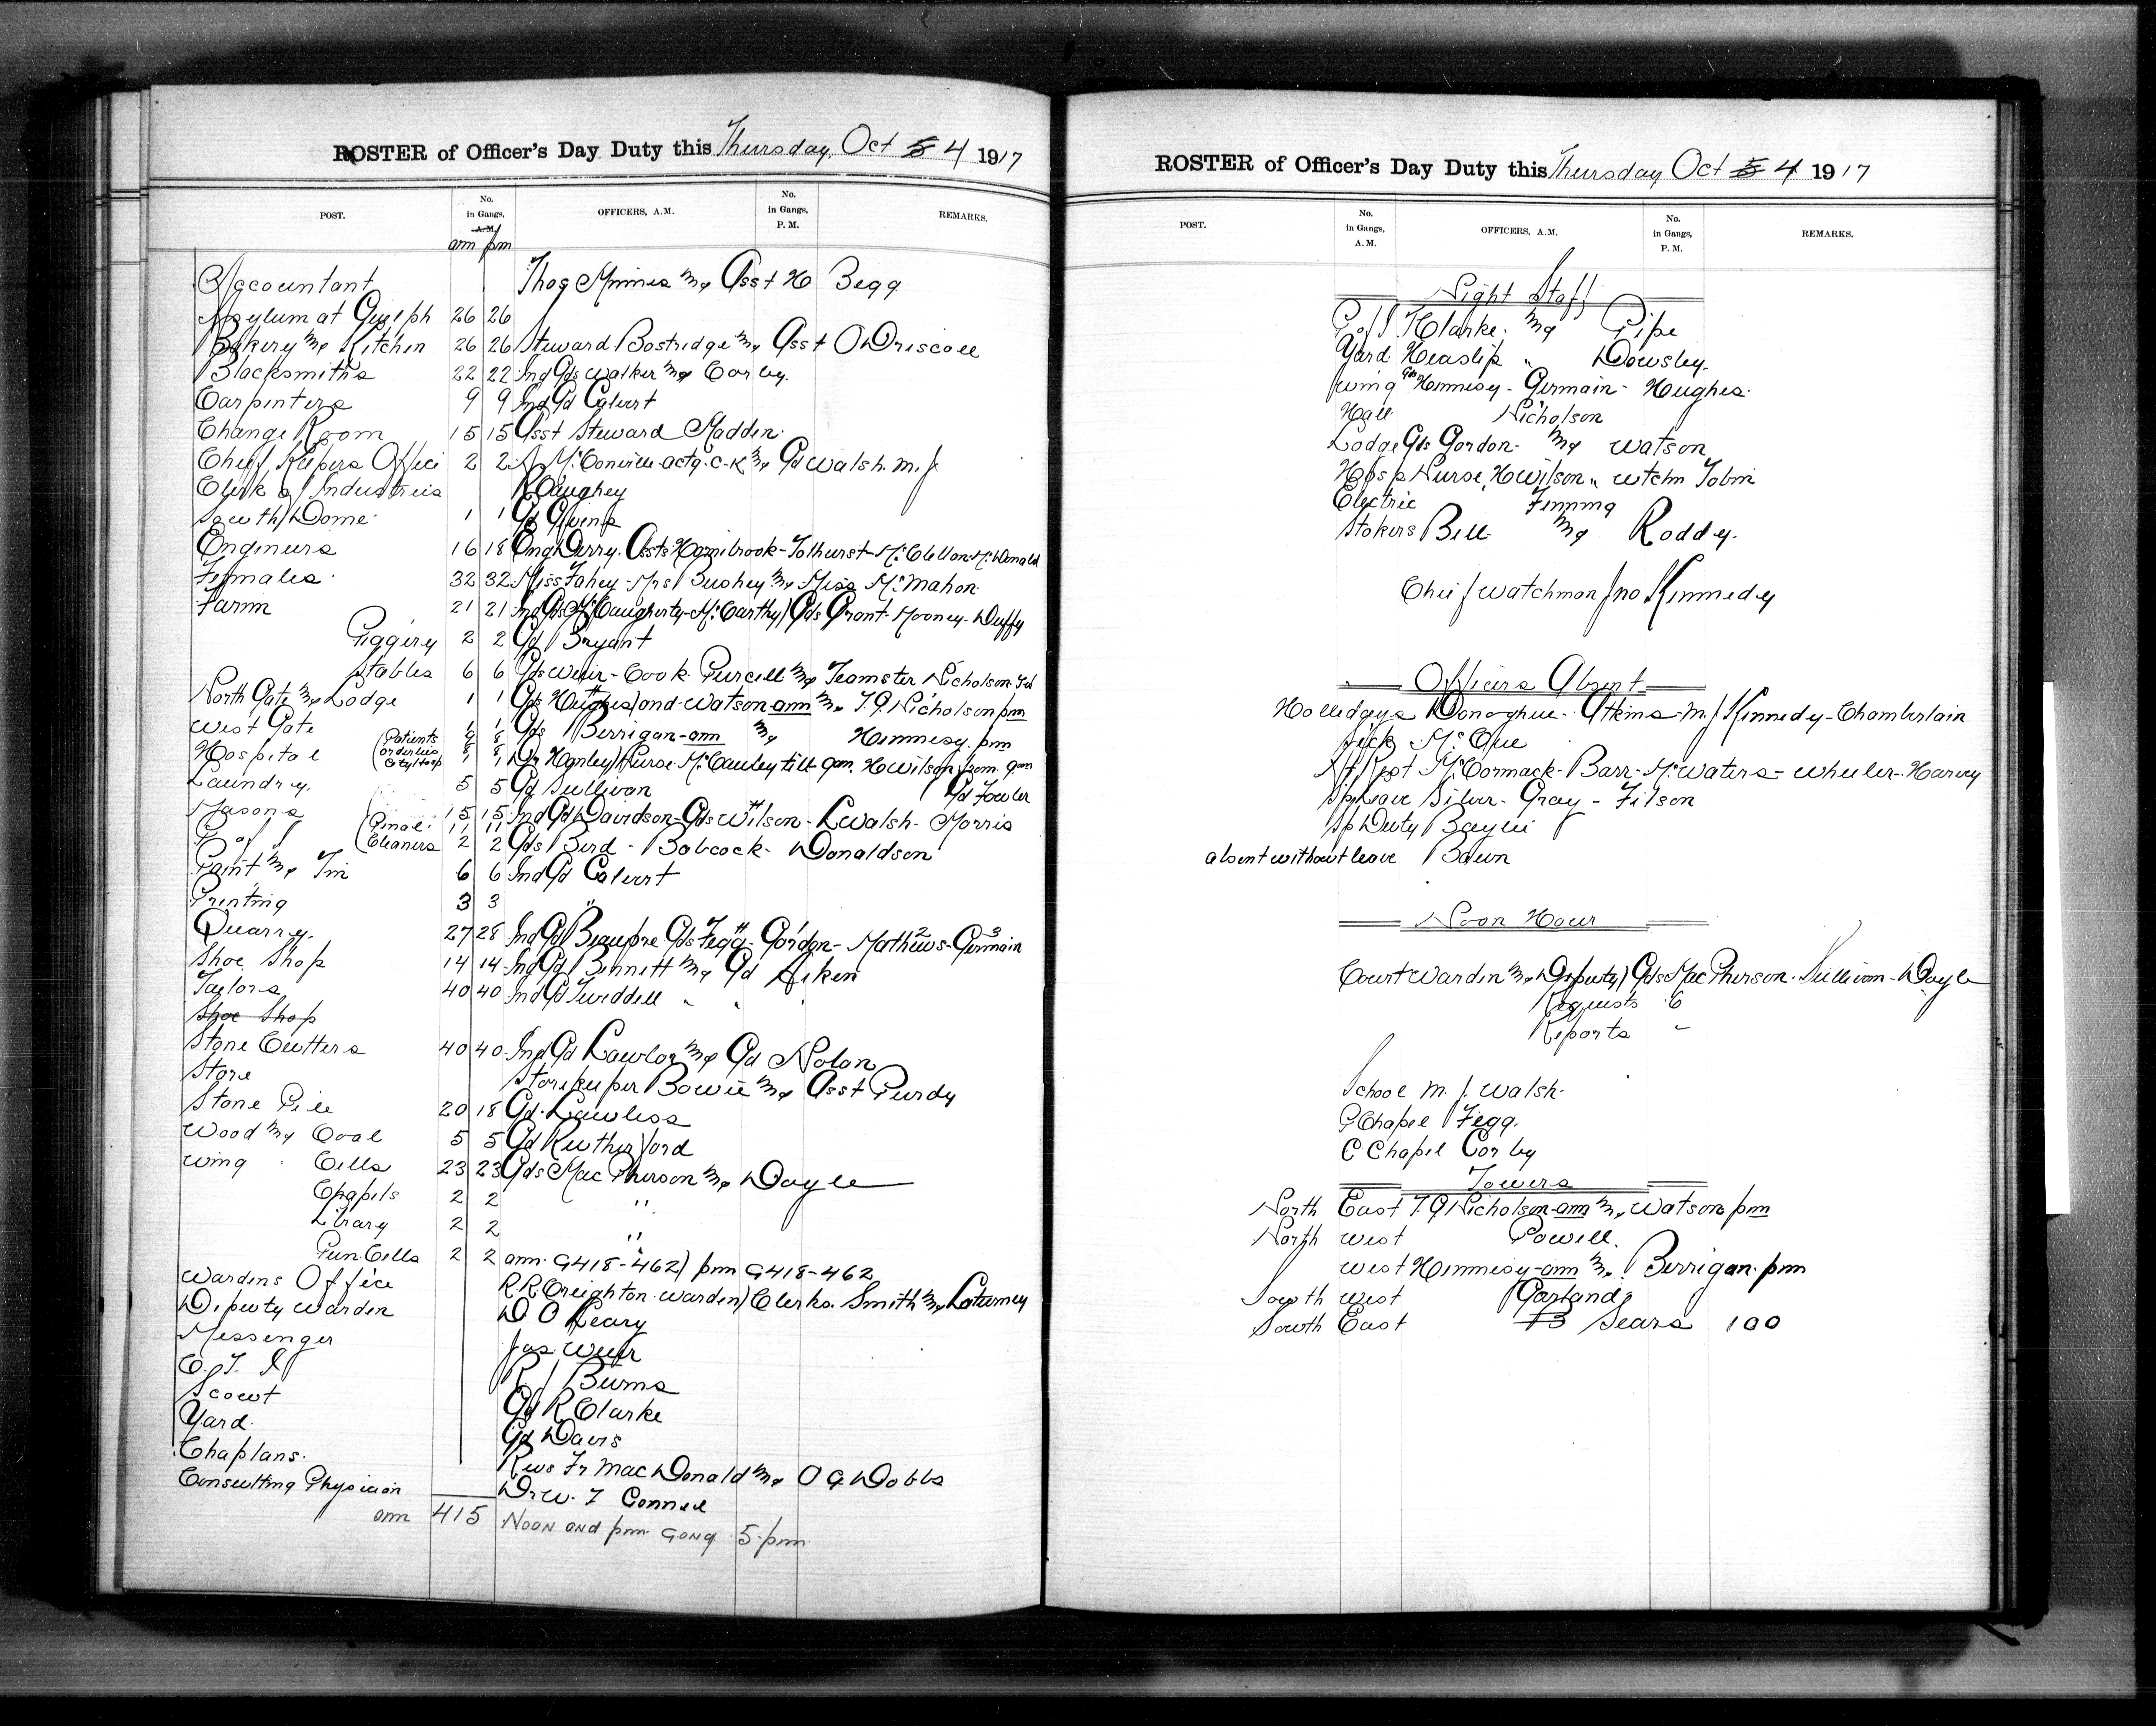 ROSTER of Officer's Day Duty this Thursday, Oct 5 4 1917
POST. No. in Gangs, A.M. OFFICERS, A.M. No. in Gangs, P.M. REMARKS.
am pm
Accountant Thos Minnes & Asst H Begg
Asylum at Guelph 26 26
Bakery & Kitchen 26 26 Steward Bostridge & Asst O Driscoll
Blacksmiths 22 22 Ind Gds Walker & Corby.
Carpenters 9 9 Ind Gd Calvert
Change Room 15 15 Asst Steward Madden
Chief Keepers Office 2 2 McConville actg. C-K & Gd Walsh. M. J.
Clerk of Industries R Caughey
South Dome 1 1 Gd Givens
Engineers 16 18 Eng Derry. Assts Hornibrook-Tolhurst-McClellan-McDonald
Females 32 32 Miss Fahey-Mrs Bushey & Miss McMahon
Farm 21 21 Ind Gds McCaugherty-McCarthy) Gds Grant-Mooney-Duffy
Piggery 2 2 Gd Bryant
Stables 6 6 Gds Weir-Cook Purcell & Teamster Nicholson
North Gate & Lodge 1 1 Gds Hughes) and Watson am & T.G. Nicholson pm
West Gate 1 1 Gds Berrigan-am & Hennessy. pm
Hospital (Patients orderlies City Hosp Nurse McCauley till 9am. H Wilson from 9am
Laundry. 5 5 Gd Sullivan Gd Fowler
Masons 15 15 Ind Gd Davidson-Gds Wilson-L Walsh-Morris
P of I (Penal 11 11
(Cleaners 2 2 Gds Bird-Babcock-Donaldson
Paint & Tin 6 6 Ind Gd Calvert
Printing 3 3 "
Quarry. 27 28 Ind Gd Beaupre Gds Fegg-Gordon-Mathews-Germain
Shoe Shop 14 14 Ind Gd Bennett & Gd Aiken
Taylors 40 40 Ind Gd Tweddell " "
Shoe Shop
Stone Cutters 40 40 Ind Gd Lawlor & Gd Nolan
Store Storekeeper Bowie & Asst Purdy
Stone Pile 20 18 Gd. Lawless
Wood & Coal 5 5 Gd Rutherford
Wing Cells 23 23 Gds MacPherson & Doyle
Chapels 2 2 "
Library 2 2 "
Pun. Cells 2 2 am G418-462) pm G418-462
Wardens Office R.R. Creighton. Warden) Clerks. Smith & Laturney
Deputy Warden D O Leary
Messenger Jas Weir
C. T. I R J Burns
Scout Gd R Clarke
Yard. Gd Davis
Chaplans. Revs Fr MacDonald & O G Dobbs
Consulting Physician Dr W. T Connell
am 415 Noon and pm Gong 5-pm
ROSTER of Officer's Day Duty this Thursday, Oct 5 4 1917
POST. No. in Gangs, A.M. OFFICERS, A.M. No. in Gangs, P.M. REMARKS.
Night Staff
P of I. Clarke. & Pipe
Yard Heaslip " Dowsley.
Wing Gds Hennessy-Germain-Hughes.
Hall Nicholson
Lodge Gds Gordon- & Watson
Hosp Nurse, H Wilson " Wtchm Tobin
Electric Fenning
Stokers Bell & Roddy.
Chief Watchman Jno Kennedy
Officers Absent
Holledays Donoghue-Atkins-M J Kennedy-Chamberlain
Sick McCue
At Rest McCormack-Barr-McWaters-Wheeler-Harvey
Sp Leave Silver-Gray-Filson
Sp Duty Baylie
absent without leave Bawn
Noon Hour
Court Warden & Deputy) Gds MacPherson. Sullivan-Doyle
Requests 6
Reports -
School M. J. Walsh.
P Chapel Fegg.
C Chapel Corby
Towers
North East T. G Nicholson-am & Watson pm
North West Powell.
West Hennessy-am & Berrigan. pm
South West Garland
South East Sears 100